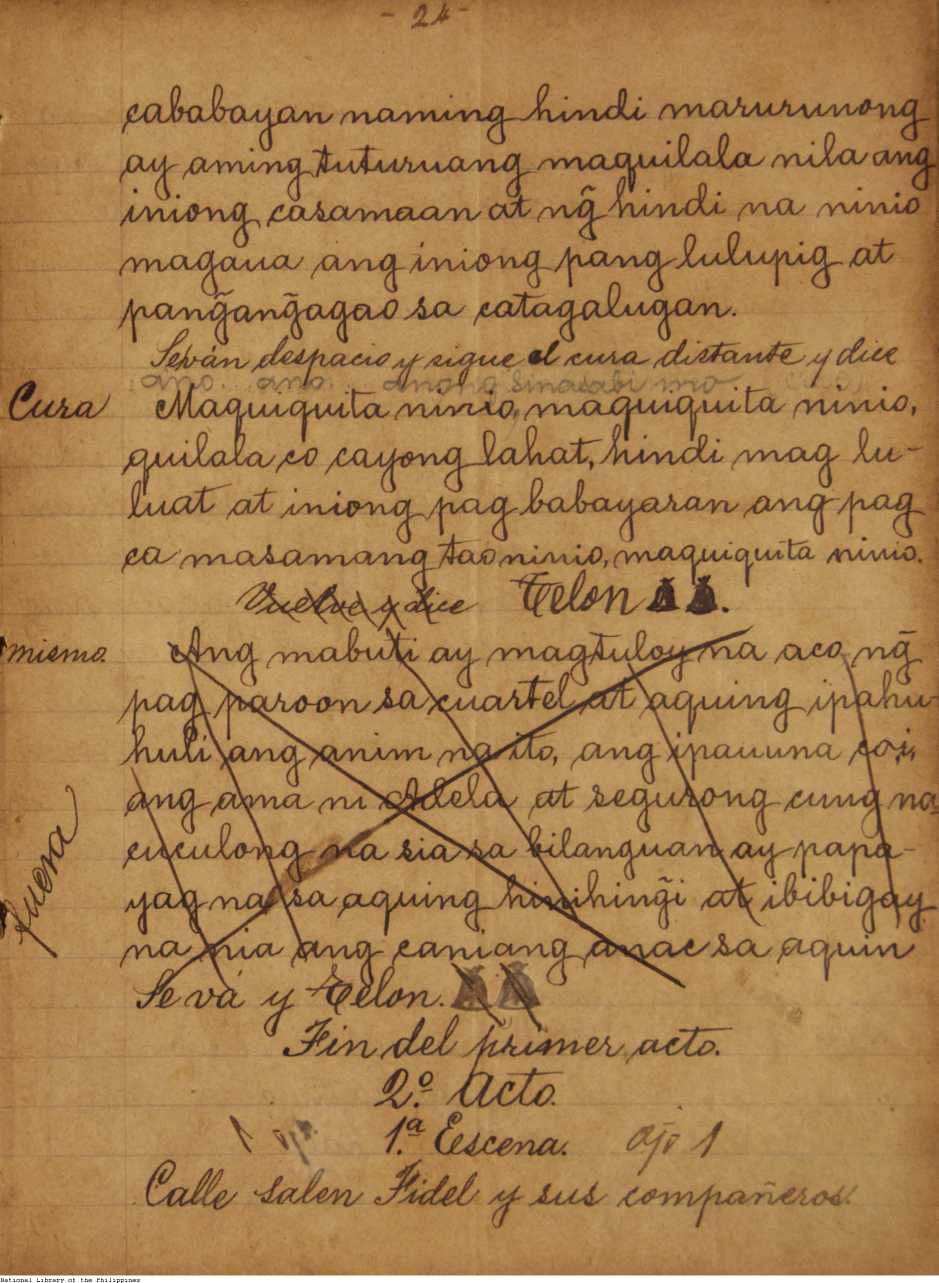 - 24 -
cababayan naming hindi marurunong
ay aming tuturuang maquilala nila ang
iniong casamaan at ng̃ hindi na ninio
magaua ang iniong pang lulupig at
pang̃ang̃agao sa catagalugan.
Seván despacio y sigue el cura distante y dice
ano. ano. anong sinasabi mo
Cura Maquiquita ninio, maquiquita ninio,
quilala co cayong lahat, hindi mag lu-
luat at iniong pag babayaran ang pag
ca masamang tao ninio, maquiquita ninio.
Vuelve y dice Telon.
mismo. Ang mabuti ay magtuloy na aco ng̃
pag paroon sa cuartel at aquing ipahu-
huli ang anim na ito, ang ipauuna co,i,
ang ama ni Adela at segurong cung na-
cuculong na sia sa bilanguan ay papa-
yag na sa aquing hinihing̃i at ibibigay
na nia ang caniang anac sa aquin
fuera
Se vá y Telon.
Fin del primer acto.
2.º Acto.
1 ojo 1.ª Escena. ojo 1
Calle salen Fidel y sus compañeros.
National Library of the Philippines